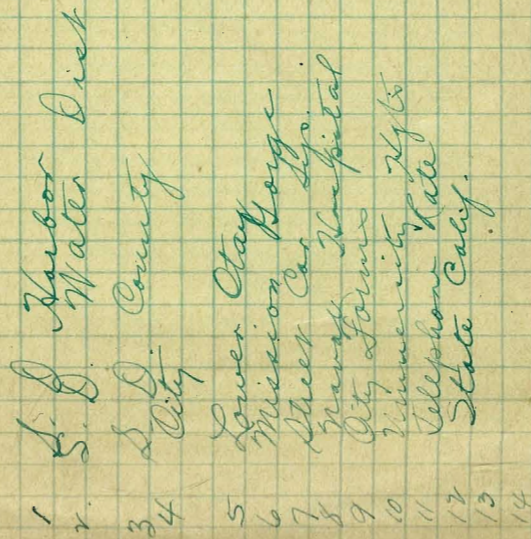 1 S. D. Harbor
2. S. D. Water Dist
3 S. D. County
4 City
5 Lower Otay
6 Mission Gorge
7 Street Car Sys.
8 Naval Hospital
9 City Forms
10 University Hgts
11 Telephone Rate
12 State Calif.
13
14